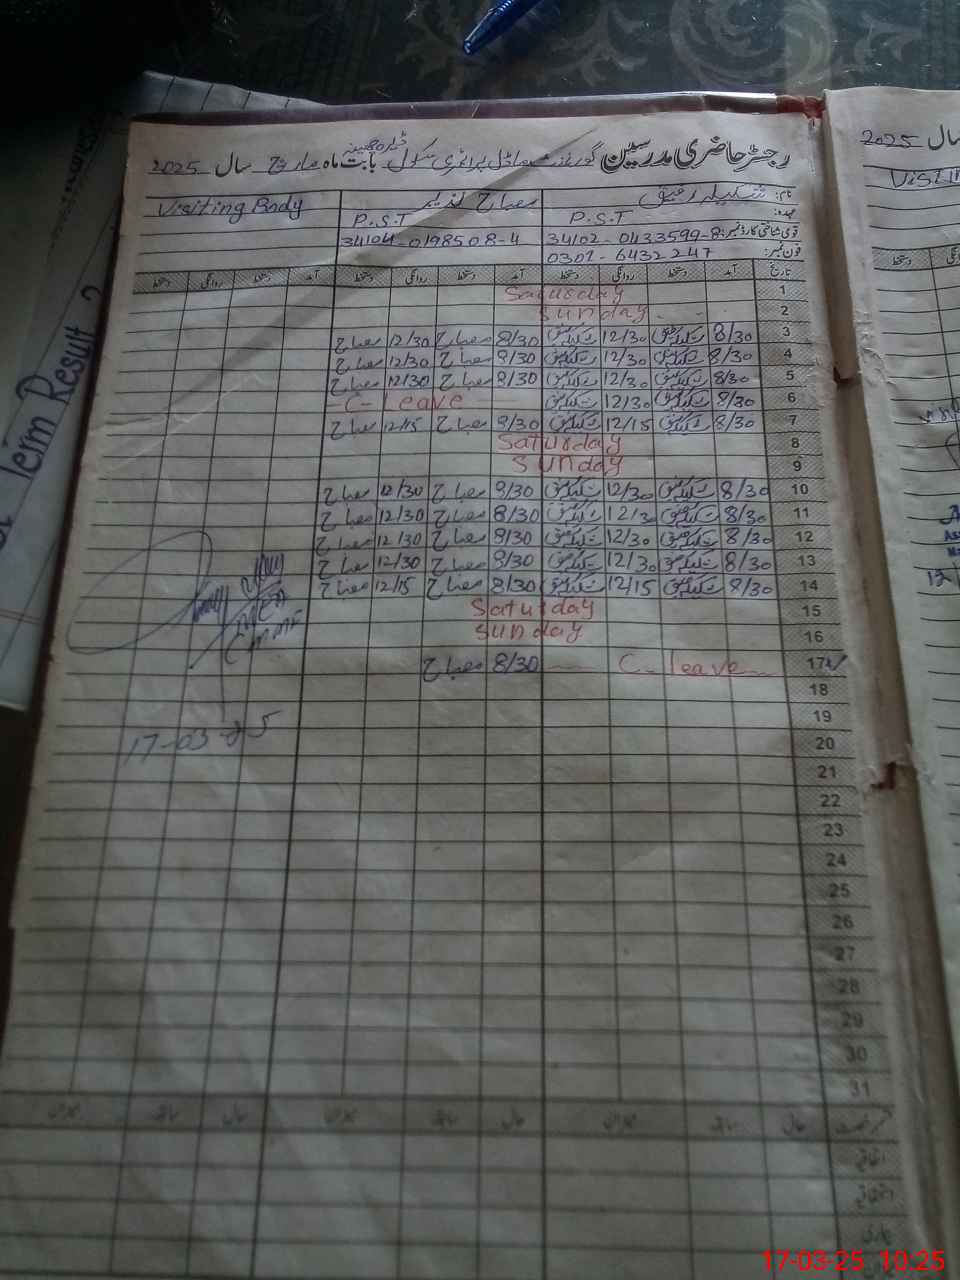 رجسٹر حاضری مدرسین گورنمنٹ ماڈل پرائمری سکول بابت ماہ مارچ سال 2025
نام: شکیلہ رفیق مصباح ندیم Visiting Body
عہدہ: P.S.T P.S.T
قومی شناختی کارڈ نمبر: 34102-0433599-8 34104-0198508-4
فون نمبر: 0301-6432247
تاریخ آمد دستخط روانگی دستخط آمد دستخط روانگی دستخط آمد دستخط روانگی دستخط
1 Saturday
2 Sunday
3 8/30 شکیلہ رفیق 12/30 شکیلہ رفیق 8/30 مصباح 12/30 مصباح
4 8/30 شکیلہ رفیق 12/30 شکیلہ رفیق 8/30 مصباح 12/30 مصباح
5 8/30 شکیلہ رفیق 12/30 شکیلہ رفیق 8/30 مصباح 12/30 مصباح
6 8/30 شکیلہ رفیق 12/30 شکیلہ رفیق C- Leave
7 8/30 شکیلہ رفیق 12/15 شکیلہ رفیق 8/30 مصباح 12/15 مصباح
8 Saturday
9 Sunday
10 8/30 شکیلہ رفیق 12/30 شکیلہ رفیق 8/30 مصباح 12/30 مصباح
11 8/30 شکیلہ رفیق 12/30 شکیلہ رفیق 8/30 مصباح 12/30 مصباح
12 8/30 شکیلہ رفیق 12/30 شکیلہ رفیق 8/30 مصباح 12/30 مصباح
13 8/30 شکیلہ رفیق 12/30 شکیلہ رفیق 8/30 مصباح 12/30 مصباح
14 8/30 شکیلہ رفیق 12/15 شکیلہ رفیق 8/30 مصباح 12/15 مصباح
15 Saturday
16 Sunday
17 C- leave 8/30 مصباح
18
19
20
17-03-25
21
22
23
24
25
26
27
28
29
30
31
سال 2025
Term Result
17-03-25 10:25